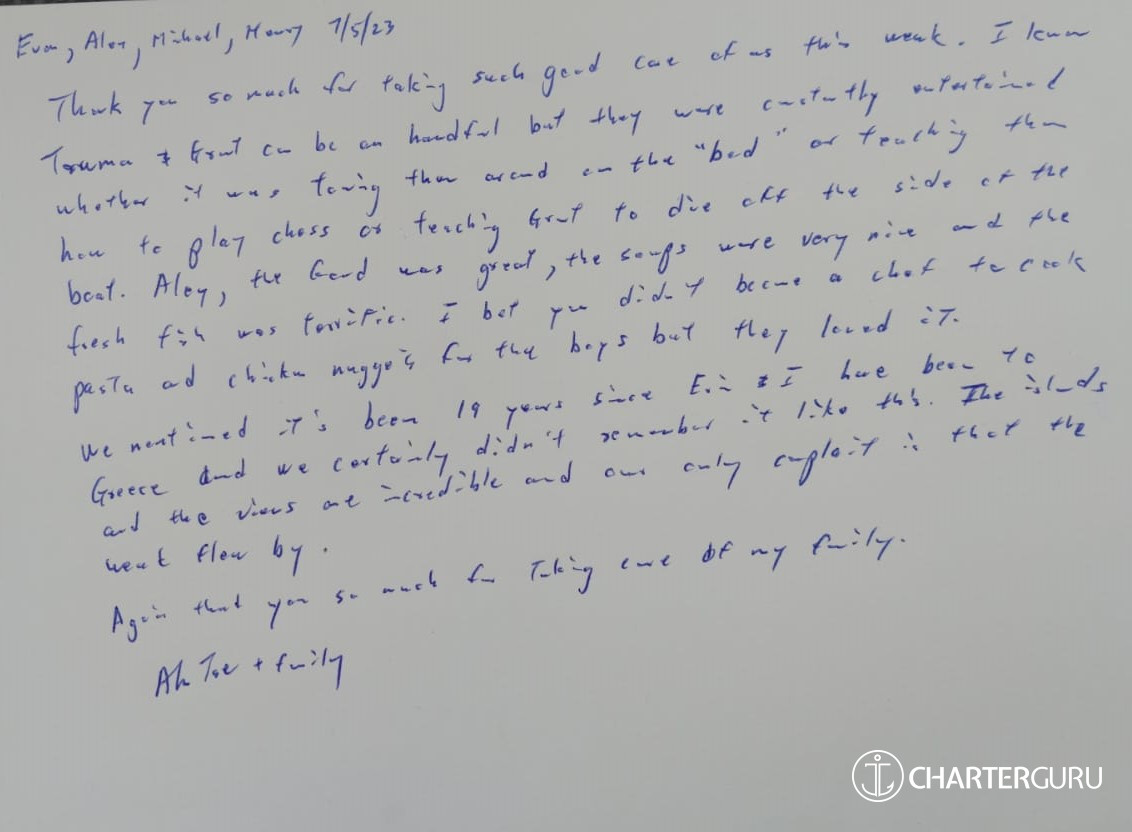 Evan, Alex, Michael, Henry 7/5/23
Thank you so much for taking such good care of us this week. I know
& Grant can be an handful but they were constantly entertained
whether it was towing them around on the "bed" or teaching them
how to play chess or teaching Grant to dive off the side of the
boat. Alex, the food was great, the soups were very nice and the
fresh fish was terrific. I bet you didn't become a chef to cook
pasta and chicken nuggets for the boys but they loved it.
We mentioned it's been 19 years since Erin & I have been to
Greece and we certainly didn't remember it like this. The islands
and the views are incredible and our only complaint is that the
week flew by.
Again thank you so much for taking care of my family.
+ family
CHARTERGURU